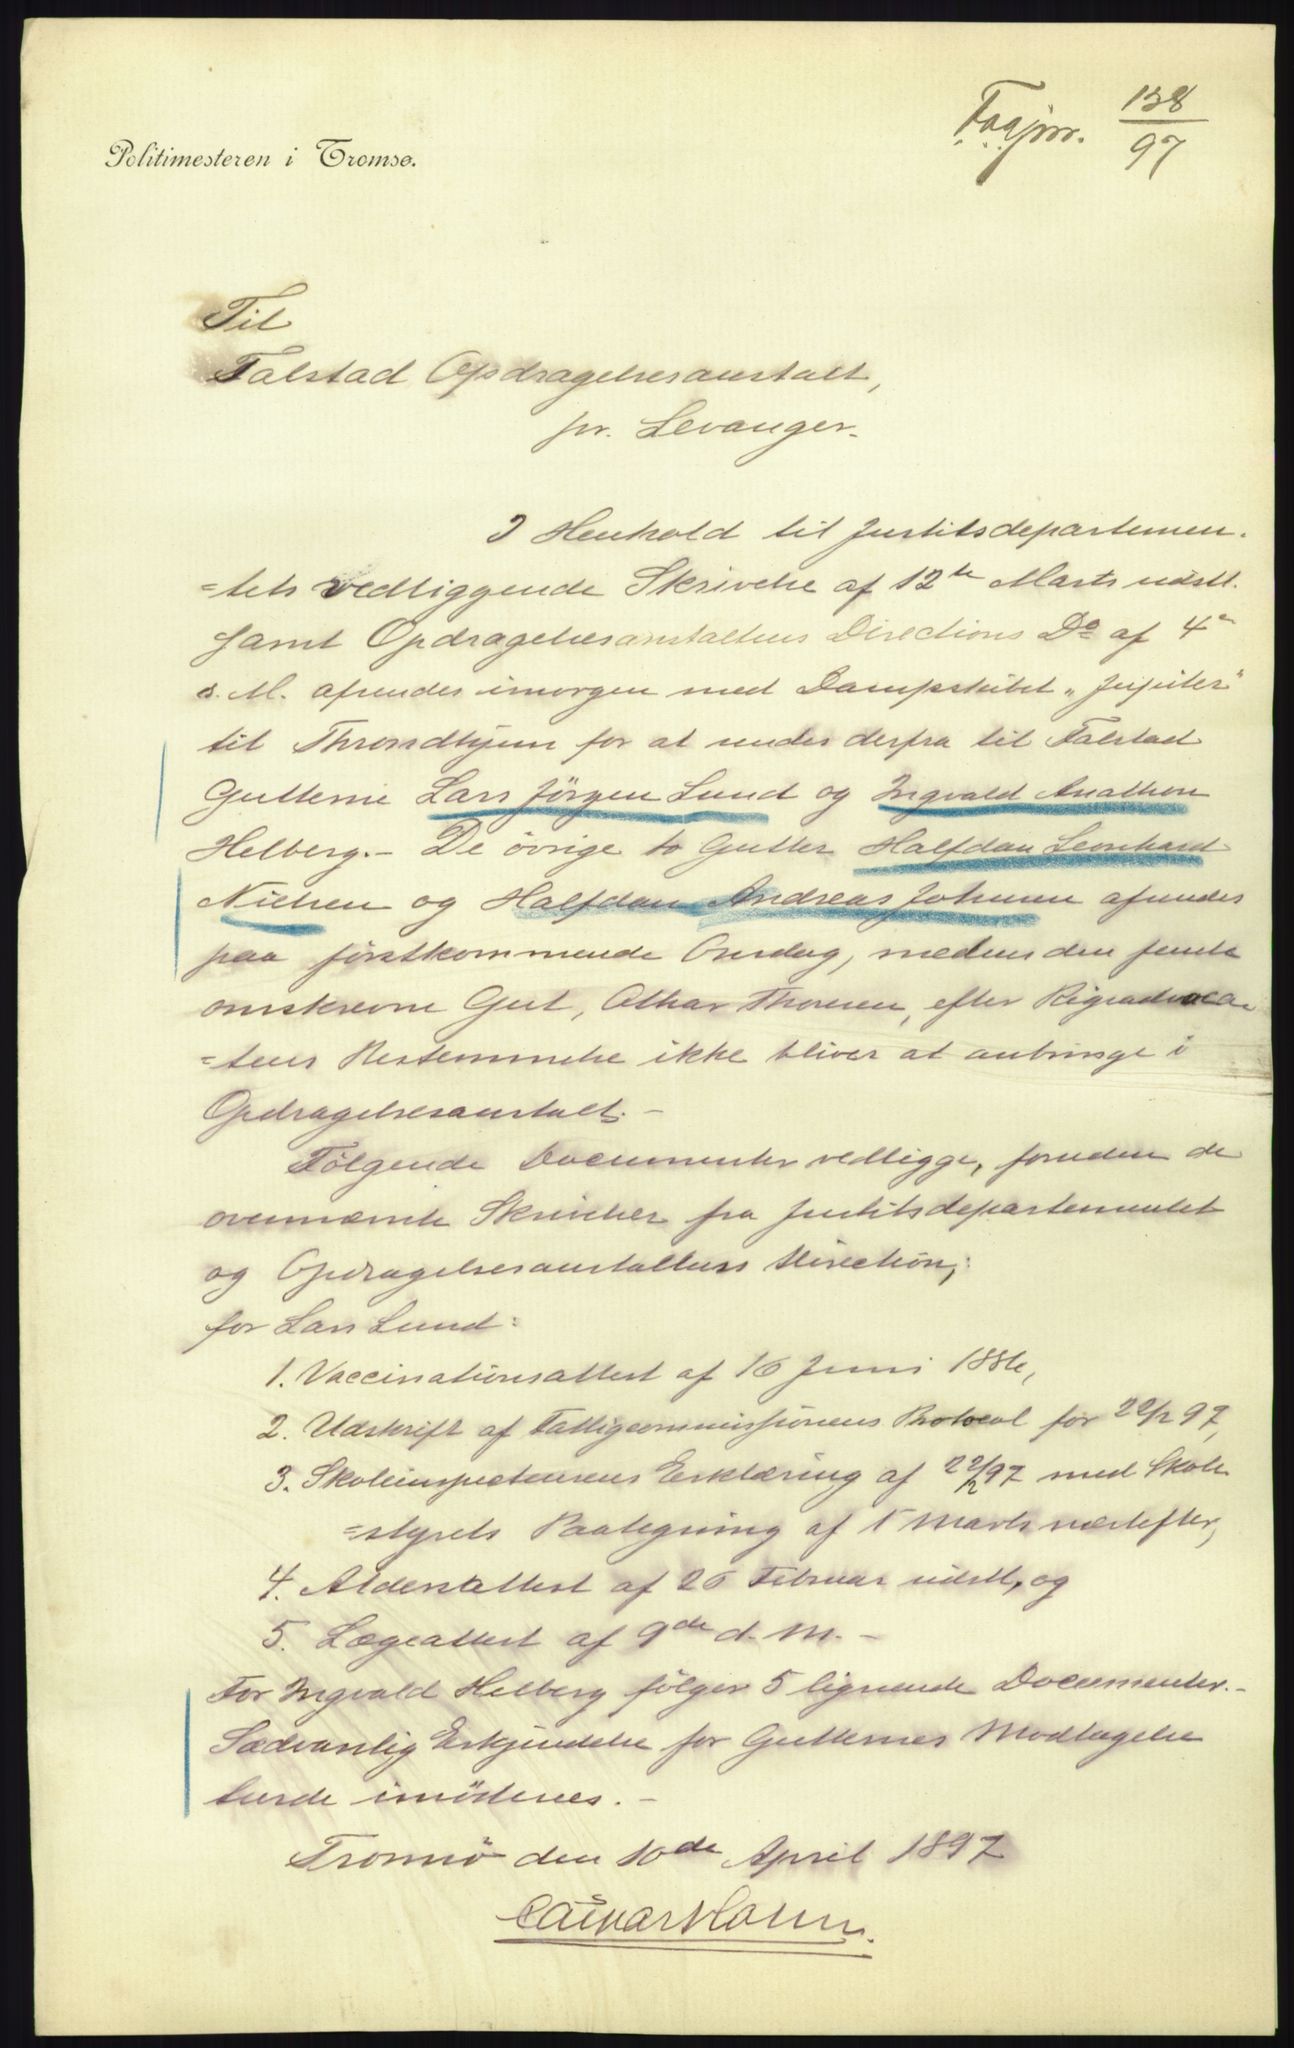 Fagjnr. 138/97
Politimesteren i Tromsø.
Til
Falstad Opdragelsesanstalt,
pr. Levanger.
I Henhold til Justitsdepartemen-
=tets vedliggende Skrivelse af 12te Marts udstl.
samt Opdragelsesanstaltens Directions Do af 4e
d. M. afsendes imorgen med Dampskibet "Jupiter"
til Throndhjem for at sendes derfra til Falstad
Gutterne Lars Jörgen Lund og Ingvald Anathon
Helberg. - De övrige to Gutter Halfdan Leonhard
Nielsen og Halfdan Andreas Johnsen afsendes
paa förstkommende Onsdag, medens den femte
omskrevne Gut, Othar Thoresen, efter Rigsadvoca-
=tens Bestemmelse ikke bliver at anbringe i
Opdragelsesanstalt. -
Fölgende Documenter vedligge, foruden de
ovennævnte Skrivelser fra Justitsdepartementet
og Opdragelsesanstaltens Direction;
for Lars Lund:
1. Vaccinationsattest af 16 Juni 1886,
2. Udskrift af Fattigcommissionens Protocol for 22/2 97,
3. Skoleinspecteurens Erklæring af 22/2 97 med Skole
=styrets Paategning af 1 Marts næstefter,
4. Aldersattest af 26 Februar udstl, og
5. Lægeattest af 9de d. M. -
For Ingvald Helberg fölger 5 lignende Documenter. -
Sædvanlig Erkjendelse for Gutternes Modtagelse
turde imödesees. -
Tromsö den 10de April 1897